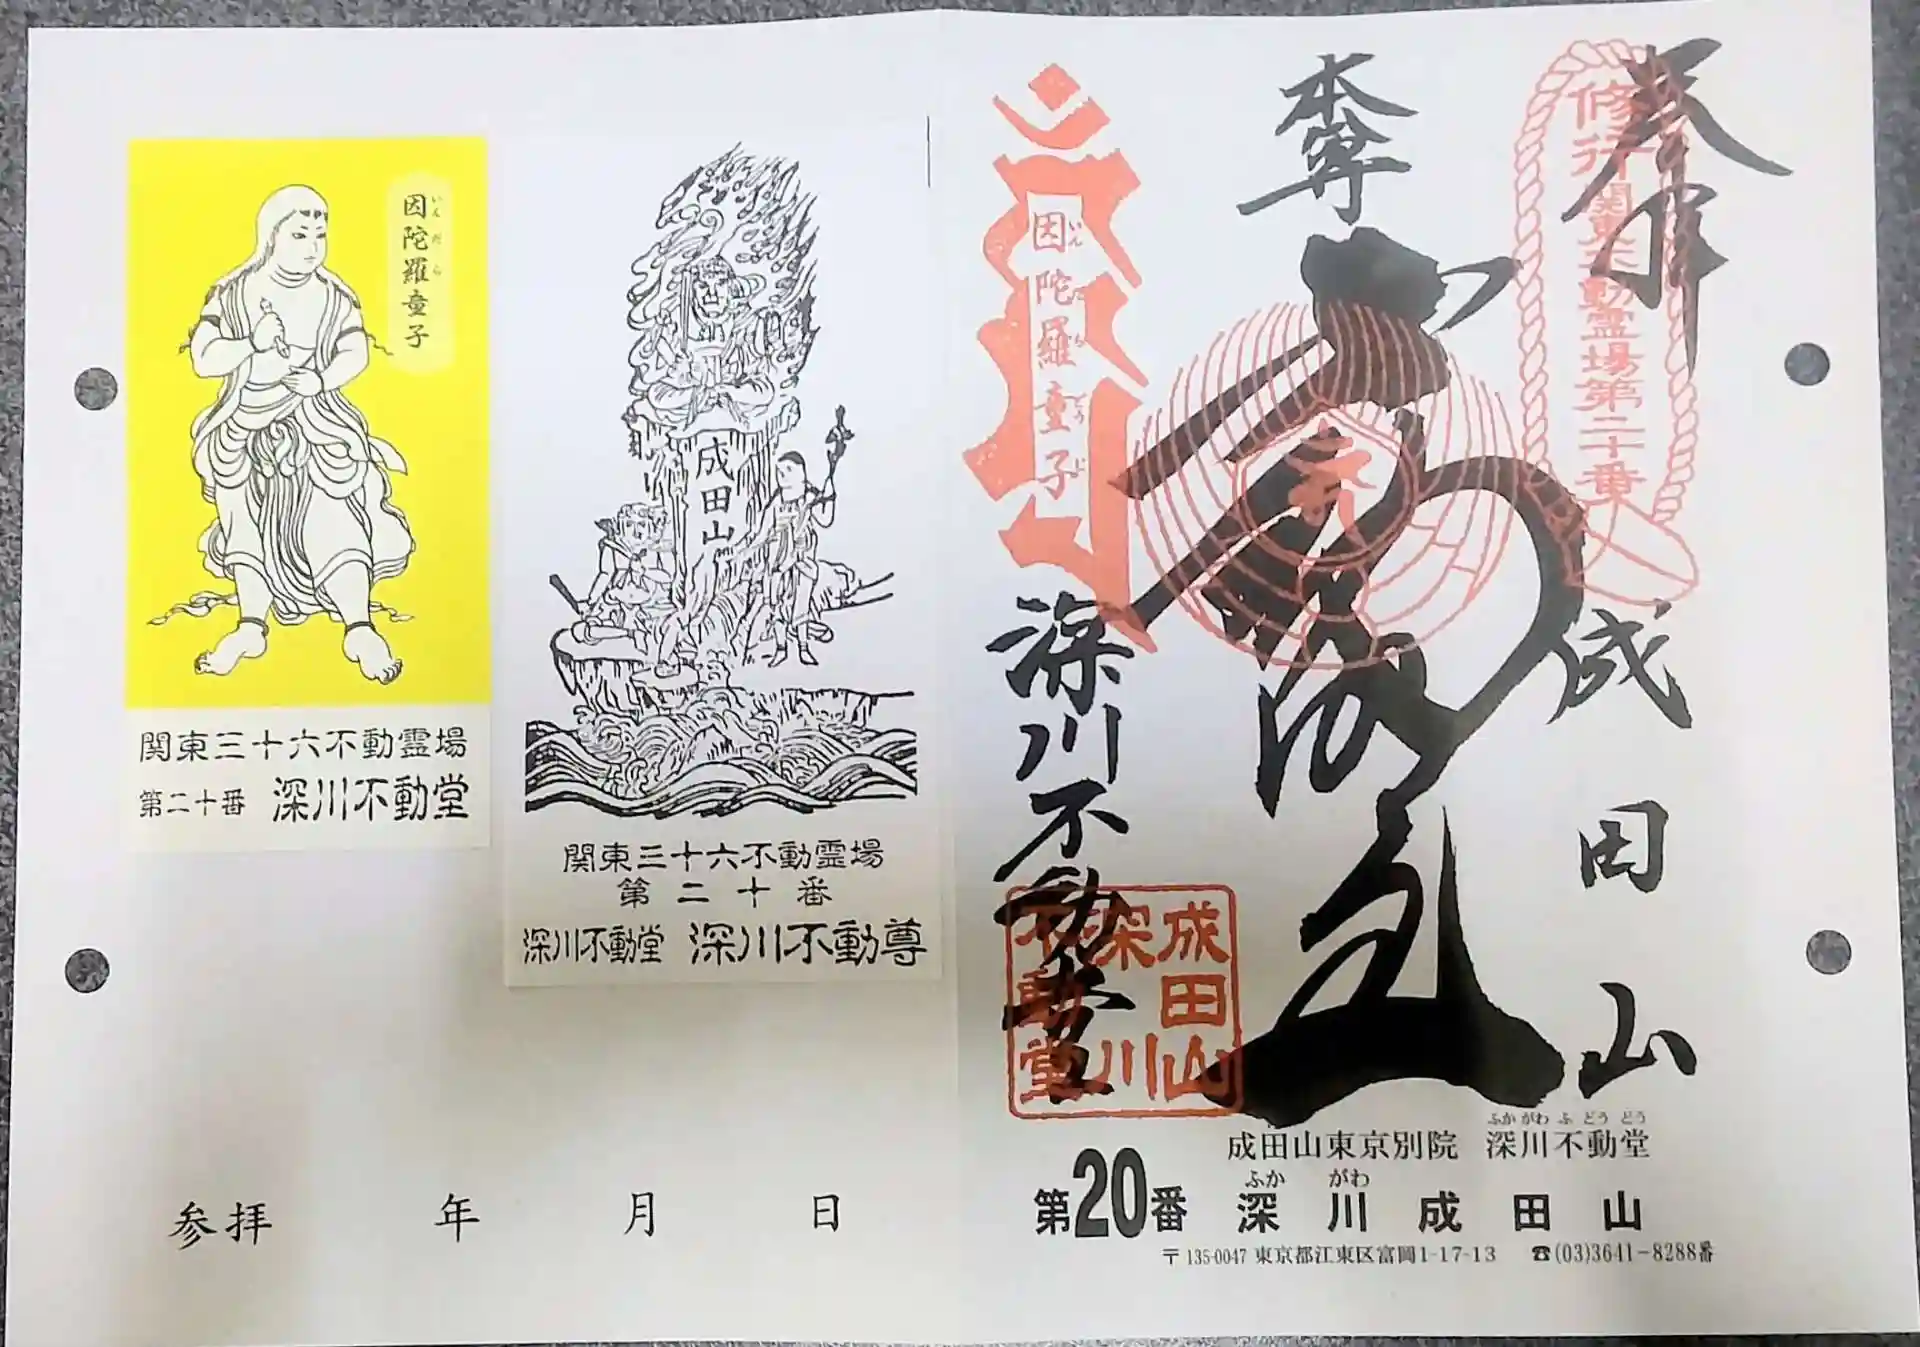 奉拝
修行関東不動霊場第二十番
成田山
本尊
因陀羅童子
いんだらどうじ
深川不動堂
成田山
深川
不動堂
ふかがわふどうどう
成田山東京別院 深川不動堂
ふか がわ
第20番 深川成田山
〒135-0047 東京都江東区富岡1-17-13 ☎(03)3641-8288番
成田山
関東三十六不動霊場
第二十番
深川不動堂 深川不動尊
因陀羅童子
いんだら
関東三十六不動霊場
第二十番 深川不動堂
参拝 年 月 日